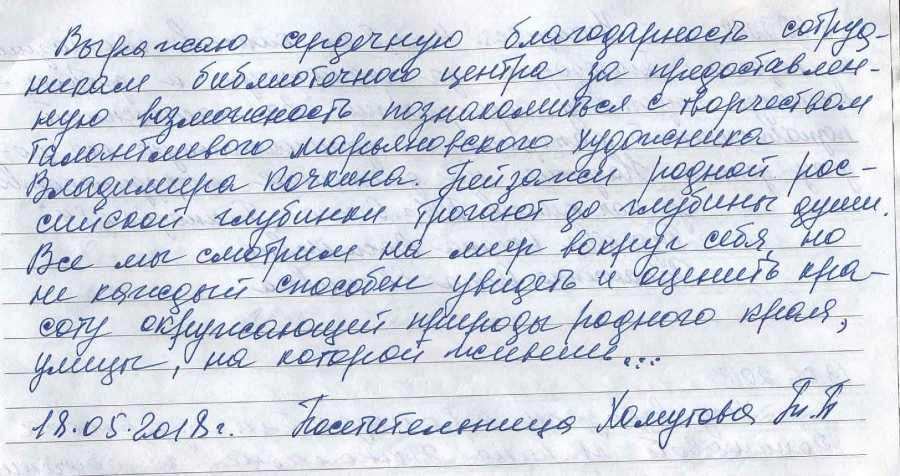 Выражаю сердечную благодарность сотруд-
никам библиотечного центра за предоставлен-
ную возможность познакомиться с творчеством
талантливого марьяновского художника
Владимира Кочкина. Пейзажи родной рос-
сийской глубинки трогают до глубины души.
Все мы смотрим на мир вокруг себя, но
не каждый способен увидеть и оценить кра-
соту окружающей природы родного края,
улицы, на которой живёшь...
18.05.2018г. Посетительница Хомутова Т.П